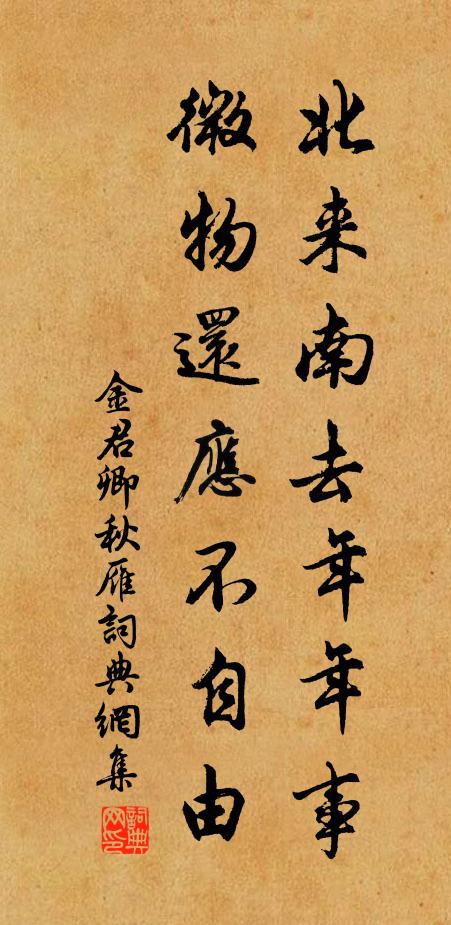 北来南去年年事
微物還應不自由
金君卿秋雁詞典網集
詞典网印